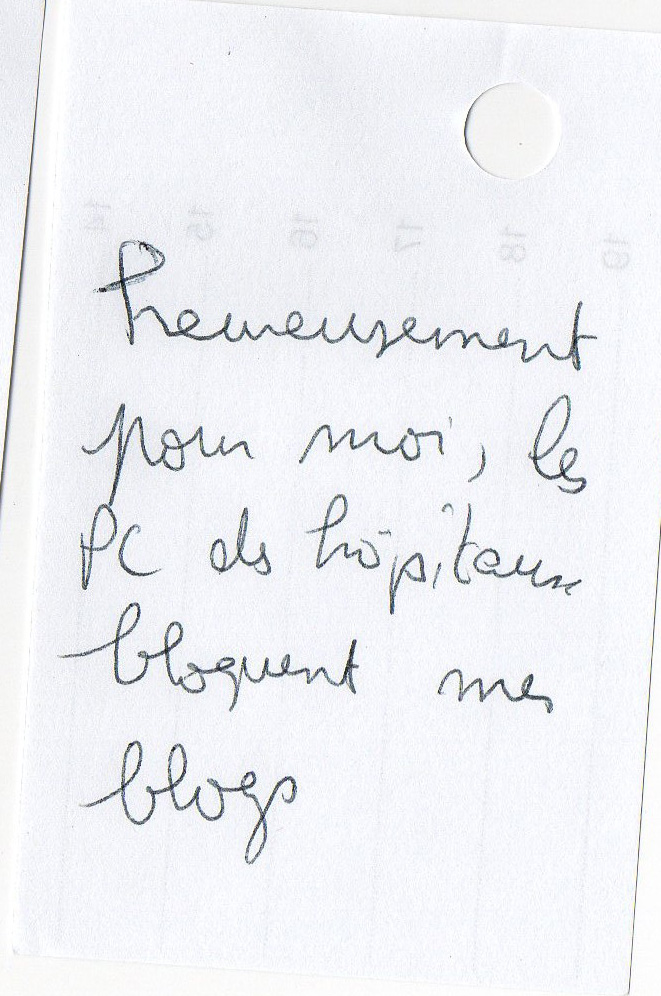 14 15 16 17 18 19
heureusement
pour moi, les
PC des hôpitaux
bloquent mes
blogs